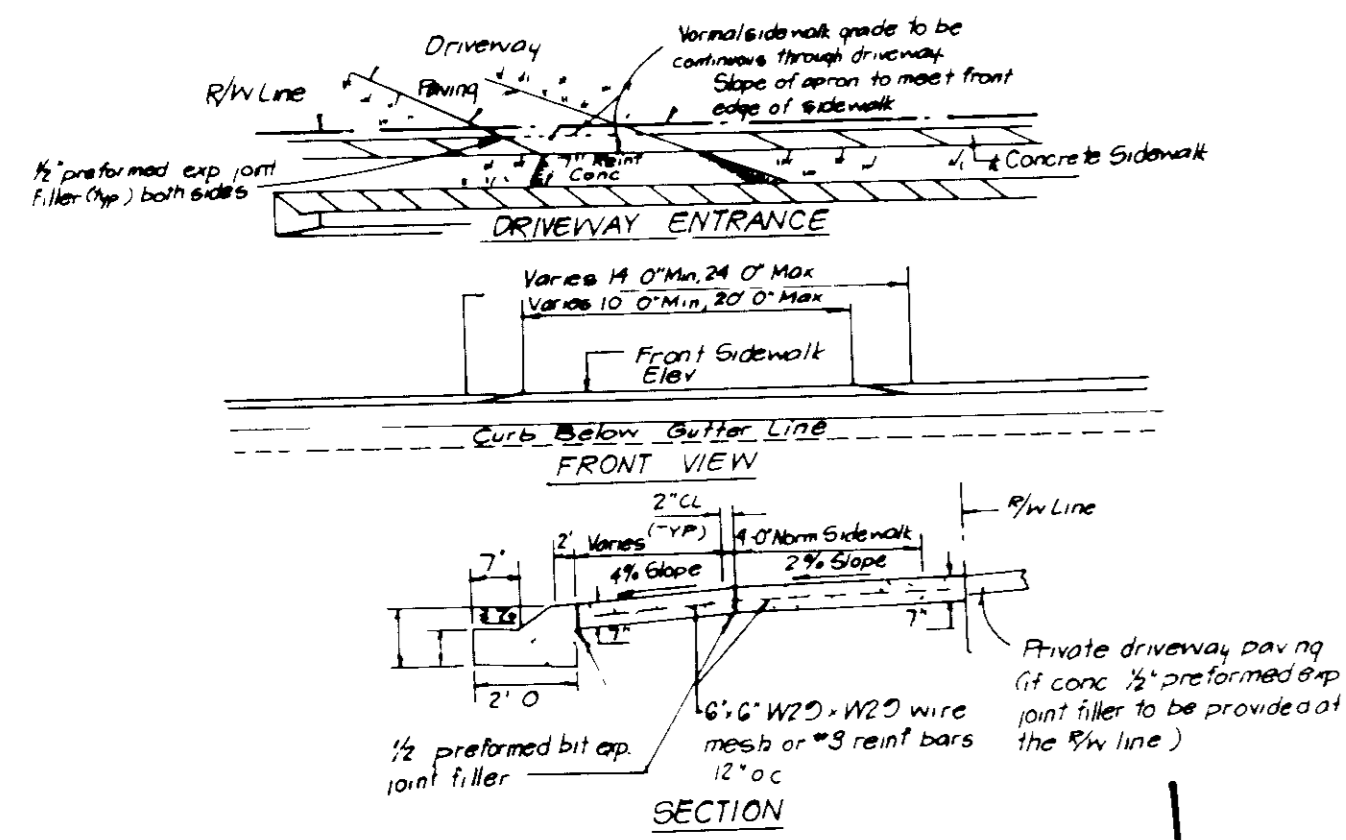 Driveway
Paving
R/W Line
Normal sidewalk grade to be
continuous through driveway
Slope of apron to meet front
edge of sidewalk
½" preformed exp joint
filler (typ) both sides
7" Reint
Conc
Concrete Sidewalk
DRIVEWAY ENTRANCE
Varies 14 0" Min, 24 0" Max
Varies 10 0" Min, 20' 0" Max
Front Sidewalk
Elev
Curb Below Gutter Line
FRONT VIEW
2" CL
(TYP)
R/W Line
2'
Varies
4 0" Norm Sidewalk
7"
4% Slope
2% Slope
7"
7"
2' 0
Private driveway paving
(if conc ½" preformed exp
joint filler to be provided at
the R/W line)
6" x 6" W2.9 x W2.9 wire
mesh or #3 reinf bars
12" o c
½ preformed bit exp.
joint filler
SECTION